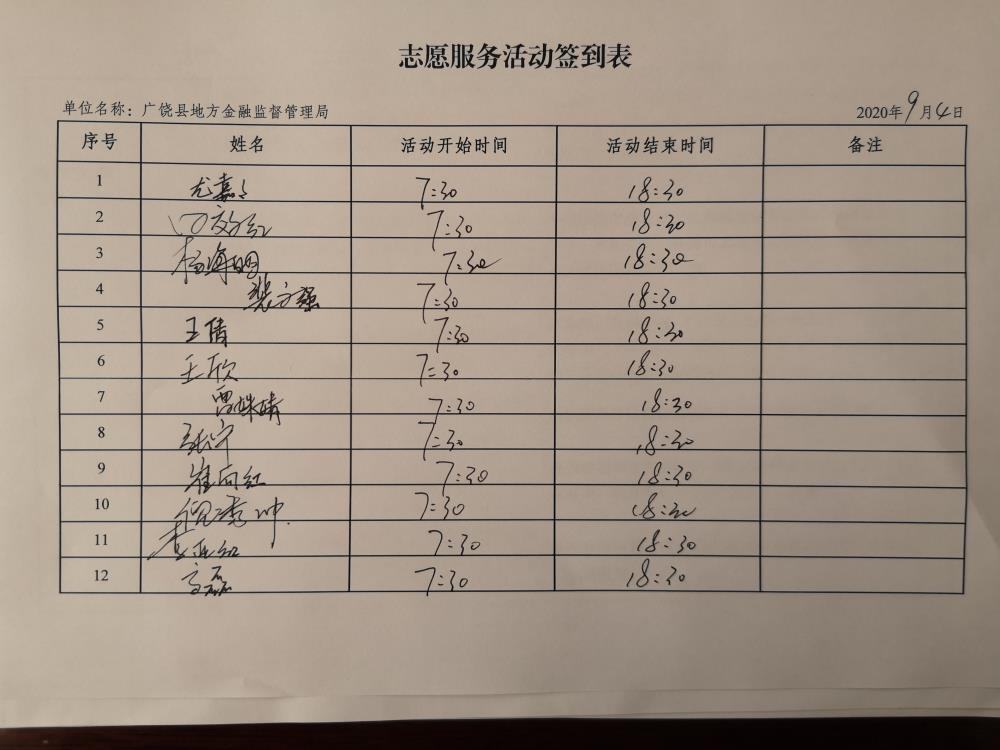 志愿服务活动签到表
单位名称：广饶县地方金融监督管理局 2020年9月4日
序号 姓名 活动开始时间 活动结束时间 备注
1 尤嘉 7:30 18:30
2 7:30 18:30
3 杨海明 7:30 18:30
4 裴方强 7:30 18:30
5 王倩 7:30 18:30
6 王欣 7:30 18:30
7 7:30 18:30
8 张宁 7:30 18:30
9 崔向红 7:30 18:30
10 7:30 18:30
11 7:30 18:30
12 高磊 7:30 18:30